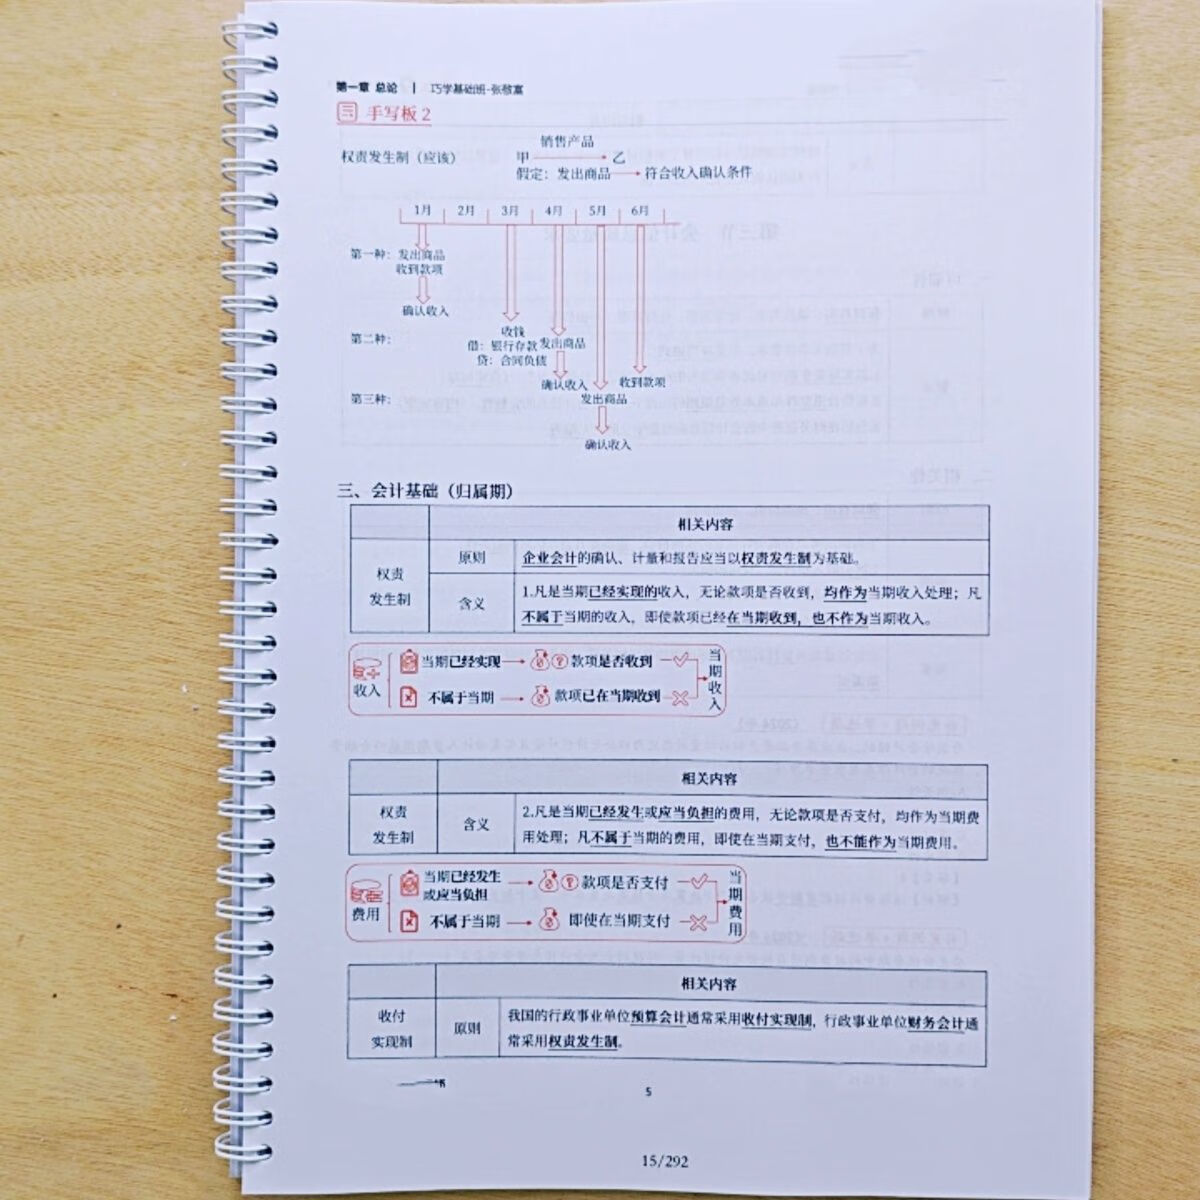 第一章 总论 | 巧学基础班-张敬富
手写板 2
权责发生制（应该）
销售产品
甲 乙
假定：发出商品 符合收入确认条件
1月 2月 3月 4月 5月 6月
第一种： 发出商品
收到款项
确认收入
第二种：
收钱
借：银行存款 发出商品
贷：合同负债
确认收入 收到款项
第三种： 发出商品
确认收入
三、会计基础（归属期）
相关内容
权责
发生制
原则 企业会计的确认、计量和报告应当以权责发生制为基础。
含义 1.凡是当期已经实现的收入，无论款项是否收到，均作为当期收入处理；凡
不属于当期的收入，即使款项已经在当期收到，也不作为当期收入。
收入 当期已经实现 款项是否收到 当期收入
不属于当期 款项已在当期收到
相关内容
权责
发生制
含义 2.凡是当期已经发生或应当负担的费用，无论款项是否支付，均作为当期费
用处理；凡不属于当期的费用，即使在当期支付，也不能作为当期费用。
费用 当期已经发生
或应当负担 款项是否支付 当期费用
不属于当期 即使在当期支付
相关内容
收付
实现制
原则 我国的行政事业单位预算会计通常采用收付实现制，行政事业单位财务会计通
常采用权责发生制。
5
15/292